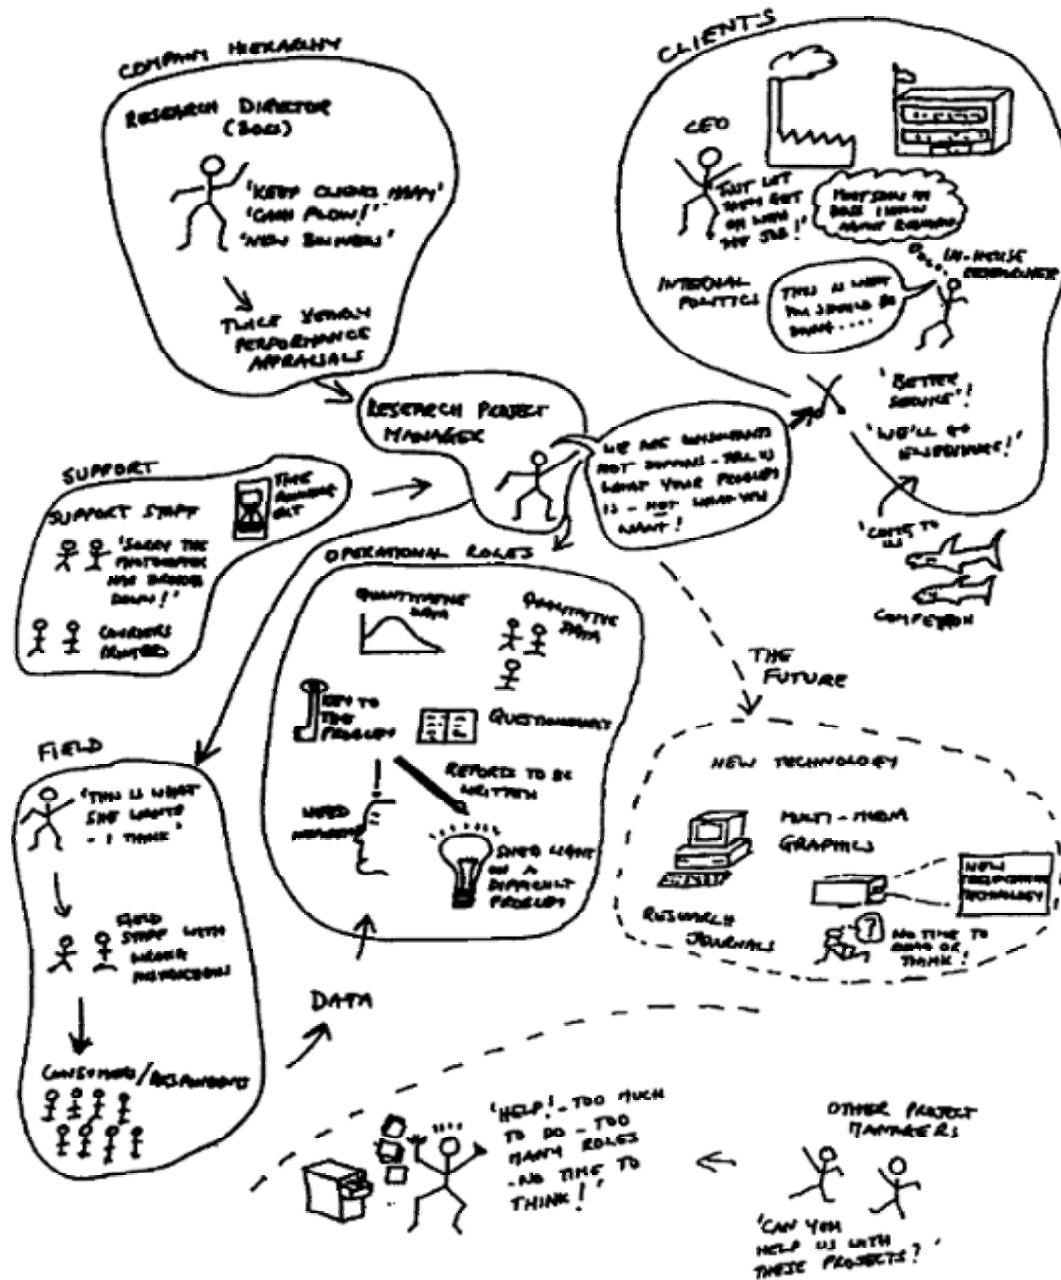 COMPANY HIERARCHY
RESEARCH DIRECTOR
(BOSS)
'KEEP CLIENTS HAPPY'
'CASH FLOW!'
'NEW BUSINESS'
TWICE YEARLY
PERFORMANCE
APPRAISALS
CLIENTS
CEO
'JUST LET
THEM GET
ON WITH
THE JOB!'
MUST SHOW MY
BOSS I KNOW
ABOUT RESEARCH
IN-HOUSE
RESEARCHER
INTERNAL
POLITICS
THIS IS WHAT
YOU SHOULD BE
DOING ....
'BETTER
SERVICE'!
'WE'LL GO
ELSEWHERE!'
'COME TO
US'
COMPETITION
RESEARCH PROJECT
MANAGER
WE ARE CONSULTANTS
NOT - TELL US
WHAT YOUR PROBLEM
IS - NOT WHAT YOU
WANT!
SUPPORT
SUPPORT STAFF
TIME
RUNNING
OUT
'SORRY THE
PHOTOCOPIER
HAS BROKEN
DOWN!'
COURIERS
PRINTERS
OPERATIONAL ROLES
QUANTITATIVE
DATA
QUALITATIVE
DATA
KEY TO
THE
PROBLEM
QUESTIONNAIRES
REPORTS TO BE
WRITTEN
NEED
SHED LIGHT
ON A
DIFFICULT
PROBLEM
THE
FUTURE
NEW TECHNOLOGY
MULTI-MEDIA
GRAPHICS
NEW
TECHNOLOGY
RESEARCH
JOURNALS
?
NO TIME TO
READ OR
THINK!
FIELD
'THIS IS WHAT
SHE WANTS
- I THINK'
FIELD
STAFF WITH
WRONG
INSTRUCTIONS
CONSUMERS/RESPONDENTS
DATA
'HELP! - TOO MUCH
TO DO - TOO
MANY ROLES
- NO TIME TO
THINK!'
OTHER PROJECT
MANAGERS
'CAN YOU
HELP US WITH
THESE PROJECTS?'